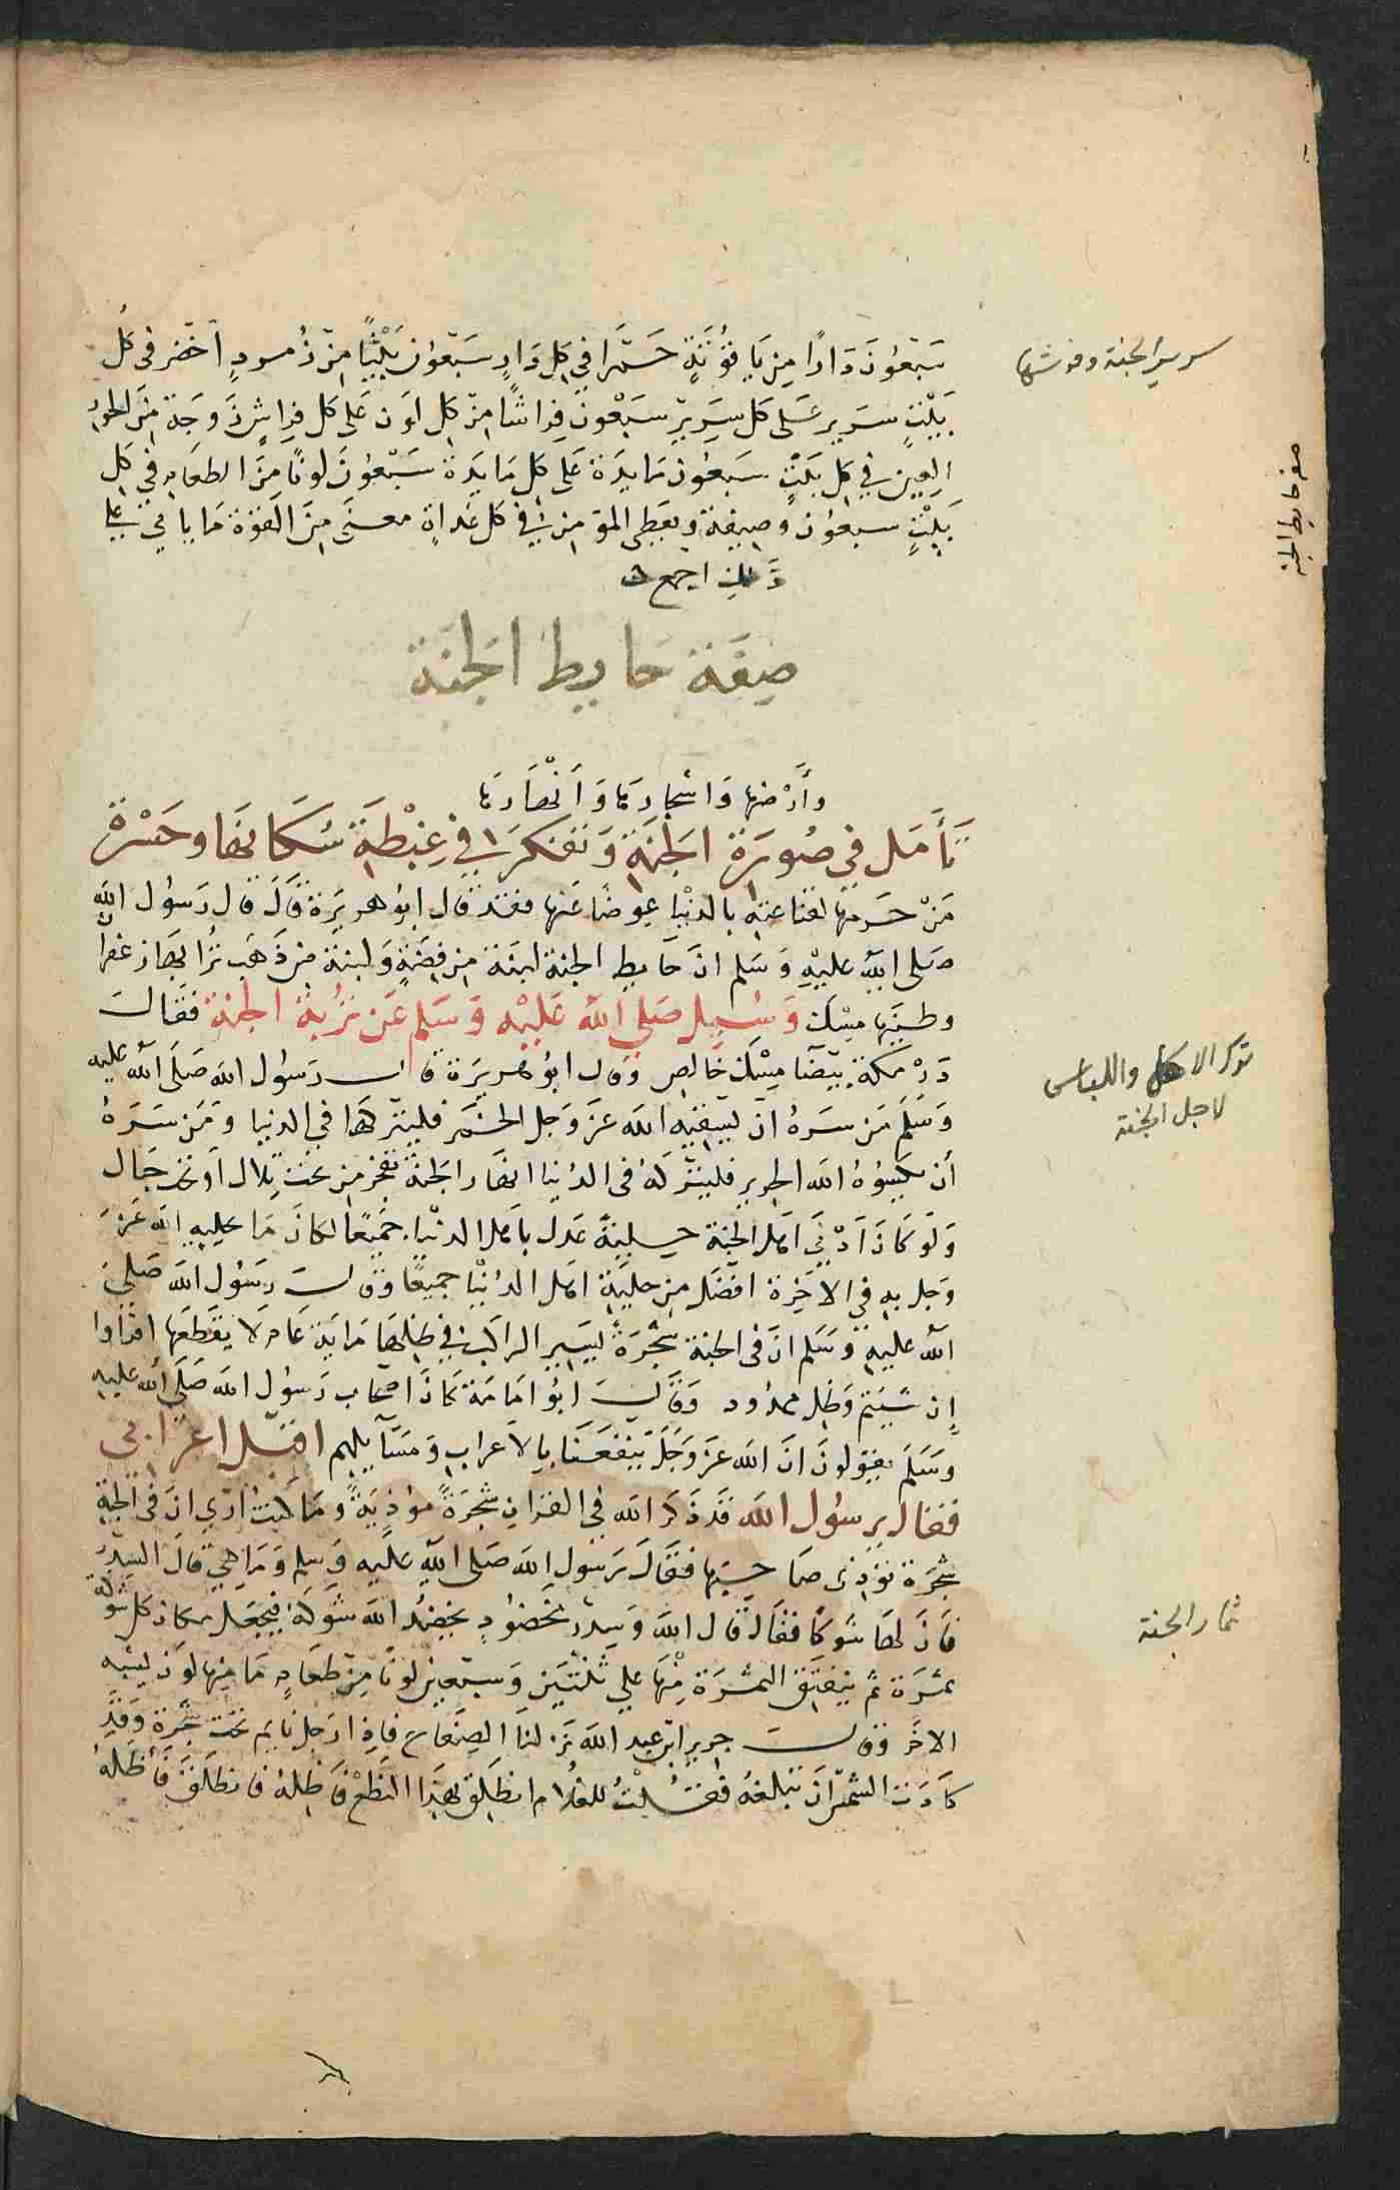 سبعون دارا من ياقوتة حمرا في كل دار سبعون بيتا من زمرد اخضر في كل
بيت سرير على كل سرير سبعون فراشا من كل لون على كل فراش زوجة من الحور
العين في كل بيت سبعون مايدة على كل مايدة سبعون لونا من الطعام في كل
بيت سبعون وصيفة ويعطى المؤمن في كل غداة معنى من القوة ما ياتي على
ذلك اجمع
صفة حايط الجنة
وأرضها واشجارها وانهارها
تأمل في صورة الجنة وتفكر في غبطة سكانها وحسرة
من حرمها لقناعته بالدنيا عوضا عنها فقد قال ابو هريرة قال قال رسول الله
صلى الله عليه وسلم ان حايط الجنة لبنة من فضة ولبنة من ذهب ترابها زعفران
وطينها مسك وسيل صلى الله عليه وسلم عن تربة الجنة فقال
درمكة بيضا مسك خالص وقال ابو هريرة قال رسول الله صلى الله عليه
وسلم من سره ان يسقيه الله عز وجل الخمر فليتركها في الدنيا ومن سره
أن يكسوه الله الحرير فليتركه في الدنيا انهار الجنة تفجر من تحت تلال او تحت جبال
ولو كان ادنى اهل الجنة حلية عدل باهل الدنيا جميعا لكان ما يحليه الله عز
وجل به في الاخرة افضل من حلية اهل الدنيا جميعا وقال رسول الله صلى
الله عليه وسلم ان في الجنة شجرة يسير الراكب في ظلها ماية عام لا يقطعها اقراوا
إن شيتم وظل ممدود وقال ابو امامة كان اصحاب رسول الله صلى الله عليه
وسلم يقولون ان الله عز وجل ينفعنا بالاعراب ومسآيلهم اقبل اعرابي
فقال يرسول الله قد ذكر الله في القران شجرة موذية وما كنت ادري ان في الجنة
شجرة توذي صاحبها فقال رسول الله صلى الله عليه وسلم وما هي قال السدر
فان لها شوكا فقال قال الله وسدر مخضود يخضد الله شوكه فيجعل مكان كل شوكة
ثمرة ثم ينفتق الثمرة منها على ثنتين وسبعين لونا من طعام ما منها لون يشبه
الاخر وقال جرير ابن عبد الله نزلنا الصفاح فاذا رجل نايم تحت شجرة وقد
كادت الشمس ان تبلغه فقلت للغلام انطلق بهذا النطع فاظله فانطلق فأظله
سرير الجنة وفرشها
صفة حايط الجنة
ترك الاكل واللباس
لاجل الجنة
ثمار الجنة